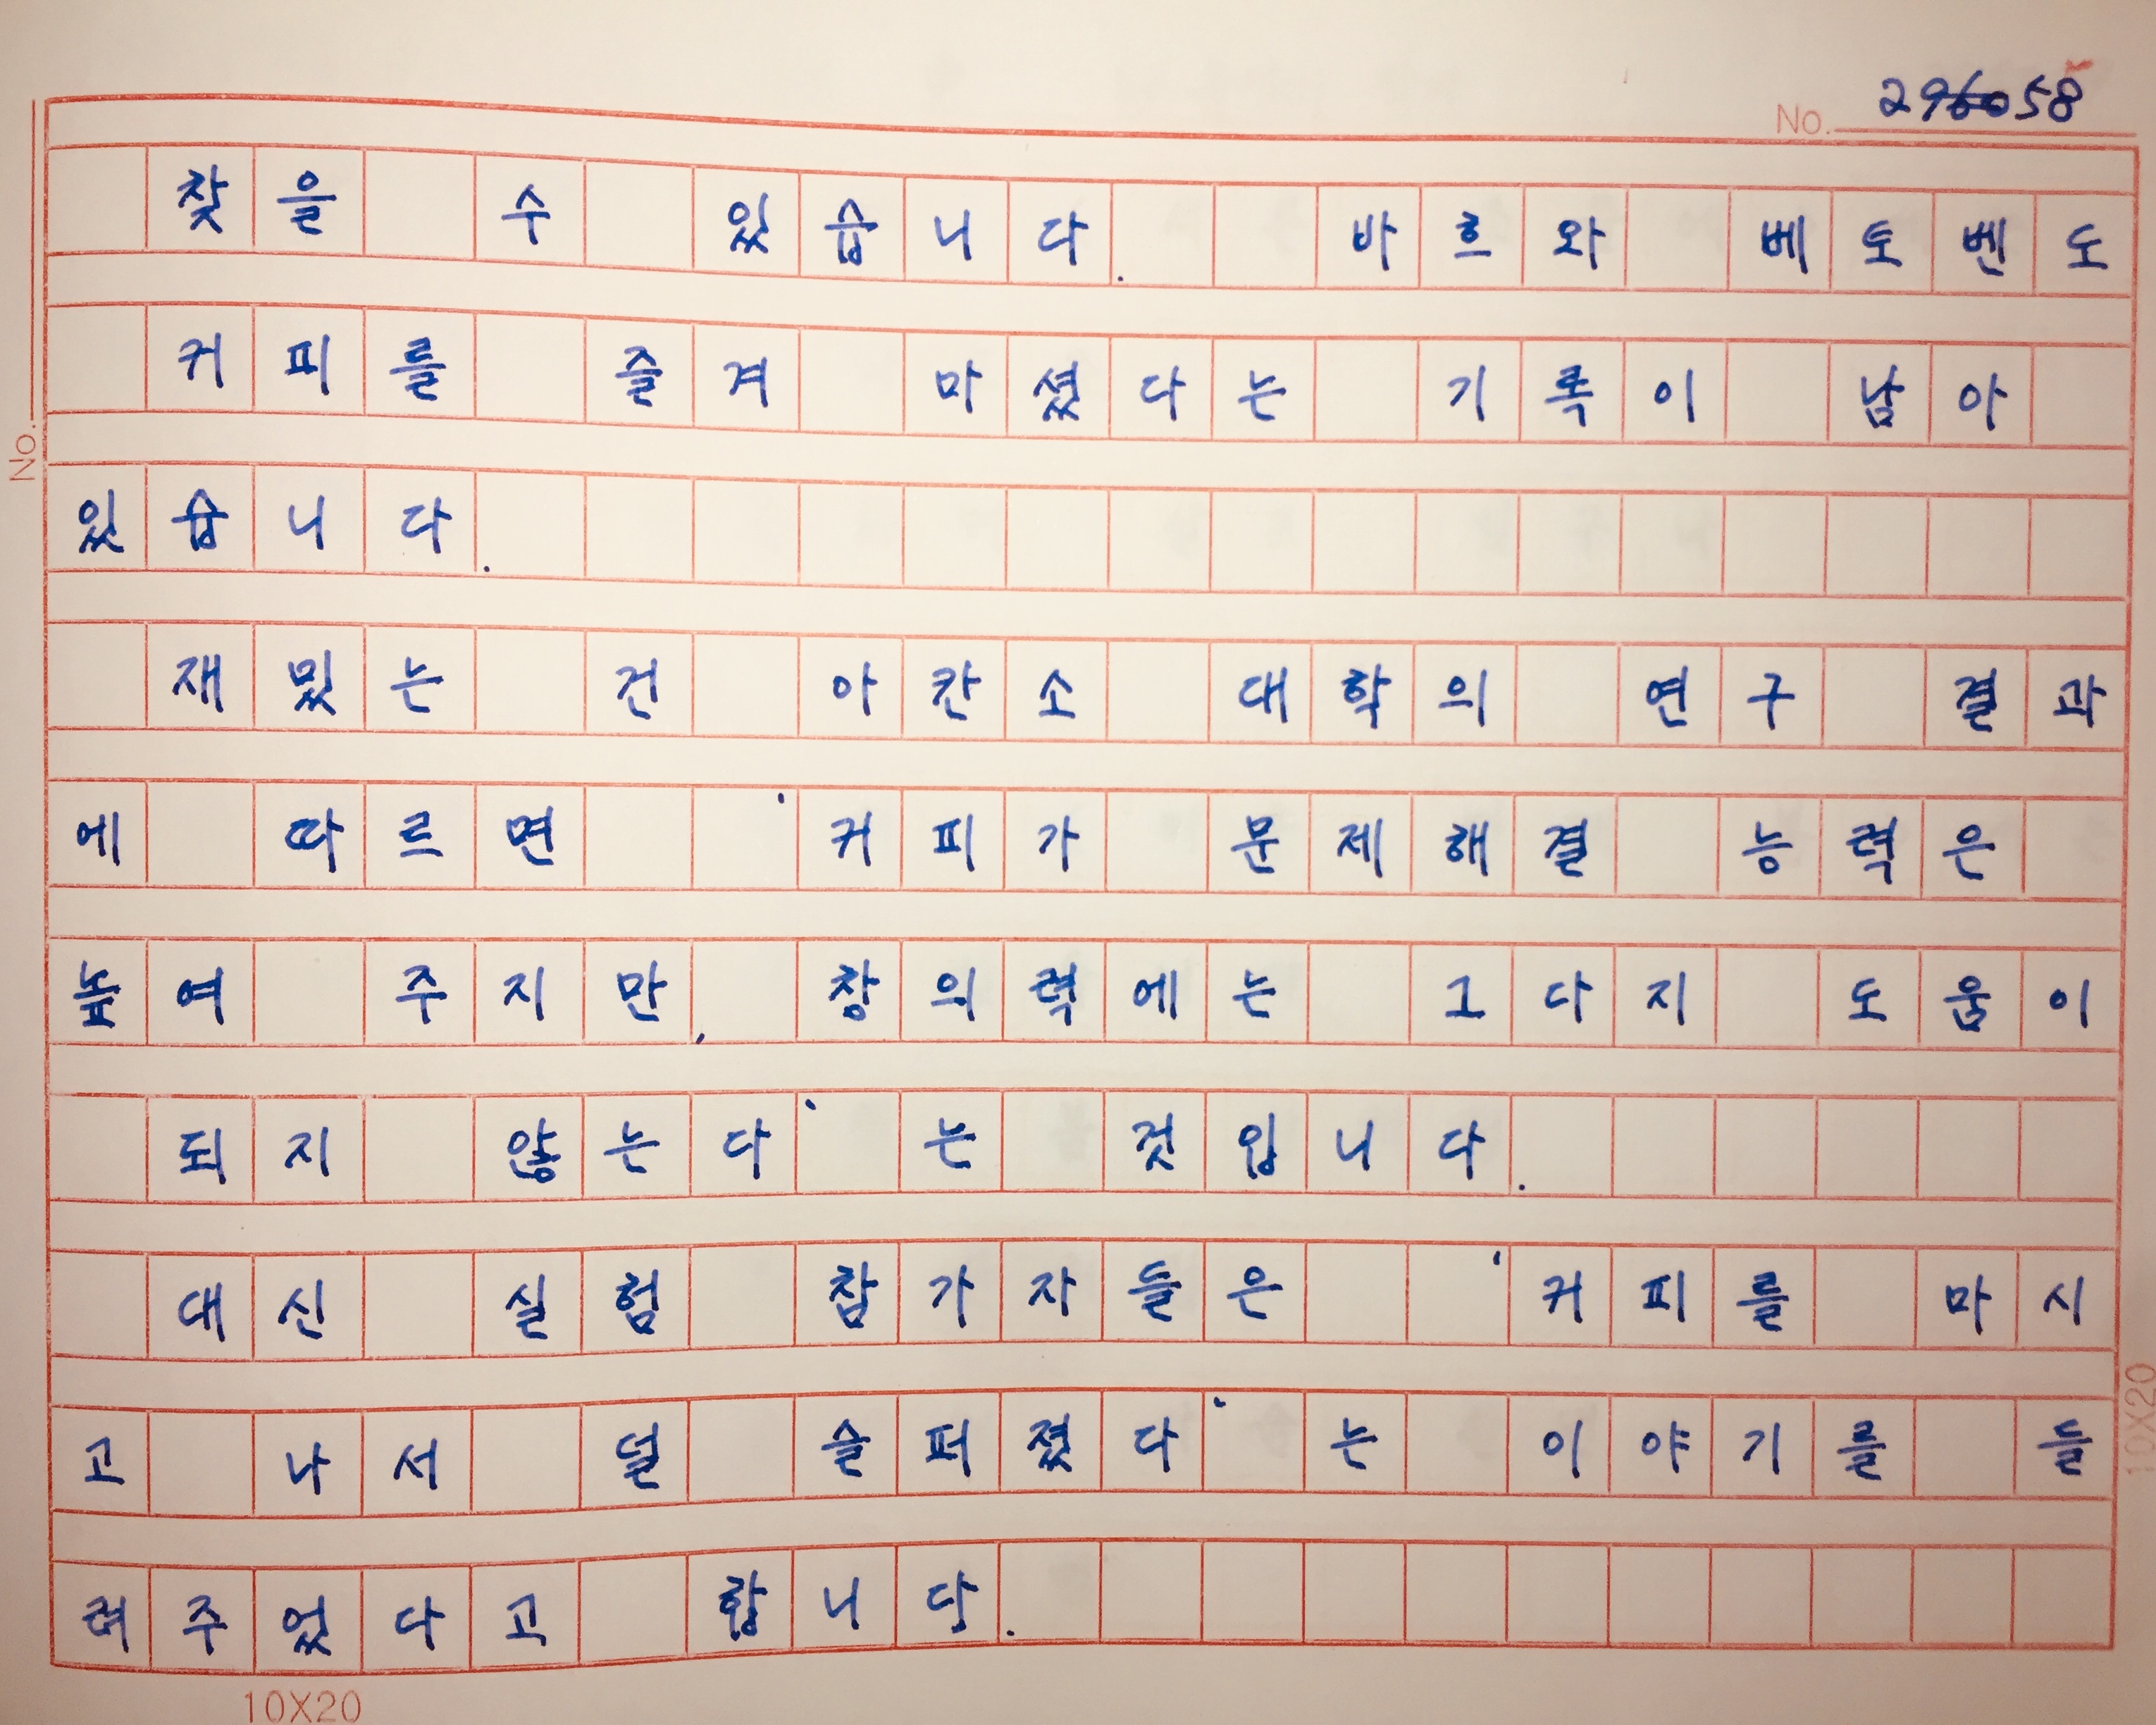 No. 296058
찾을 수 있습니다. 바흐와 베토벤도
커피를 즐겨 마셨다는 기록이 남아
있습니다.
재밌는 건 아칸소 대학의 연구 결과
에 따르면 '커피가 문제해결 능력은
높여 주지만, 창의력에는 그다지 도움이
되지 않는다'는 것입니다.
대신 실험 참가자들은 '커피를 마시
고 나서 덜 슬퍼졌다'는 이야기를 들
려주었다고 합니당.
No.
10X20
10X20